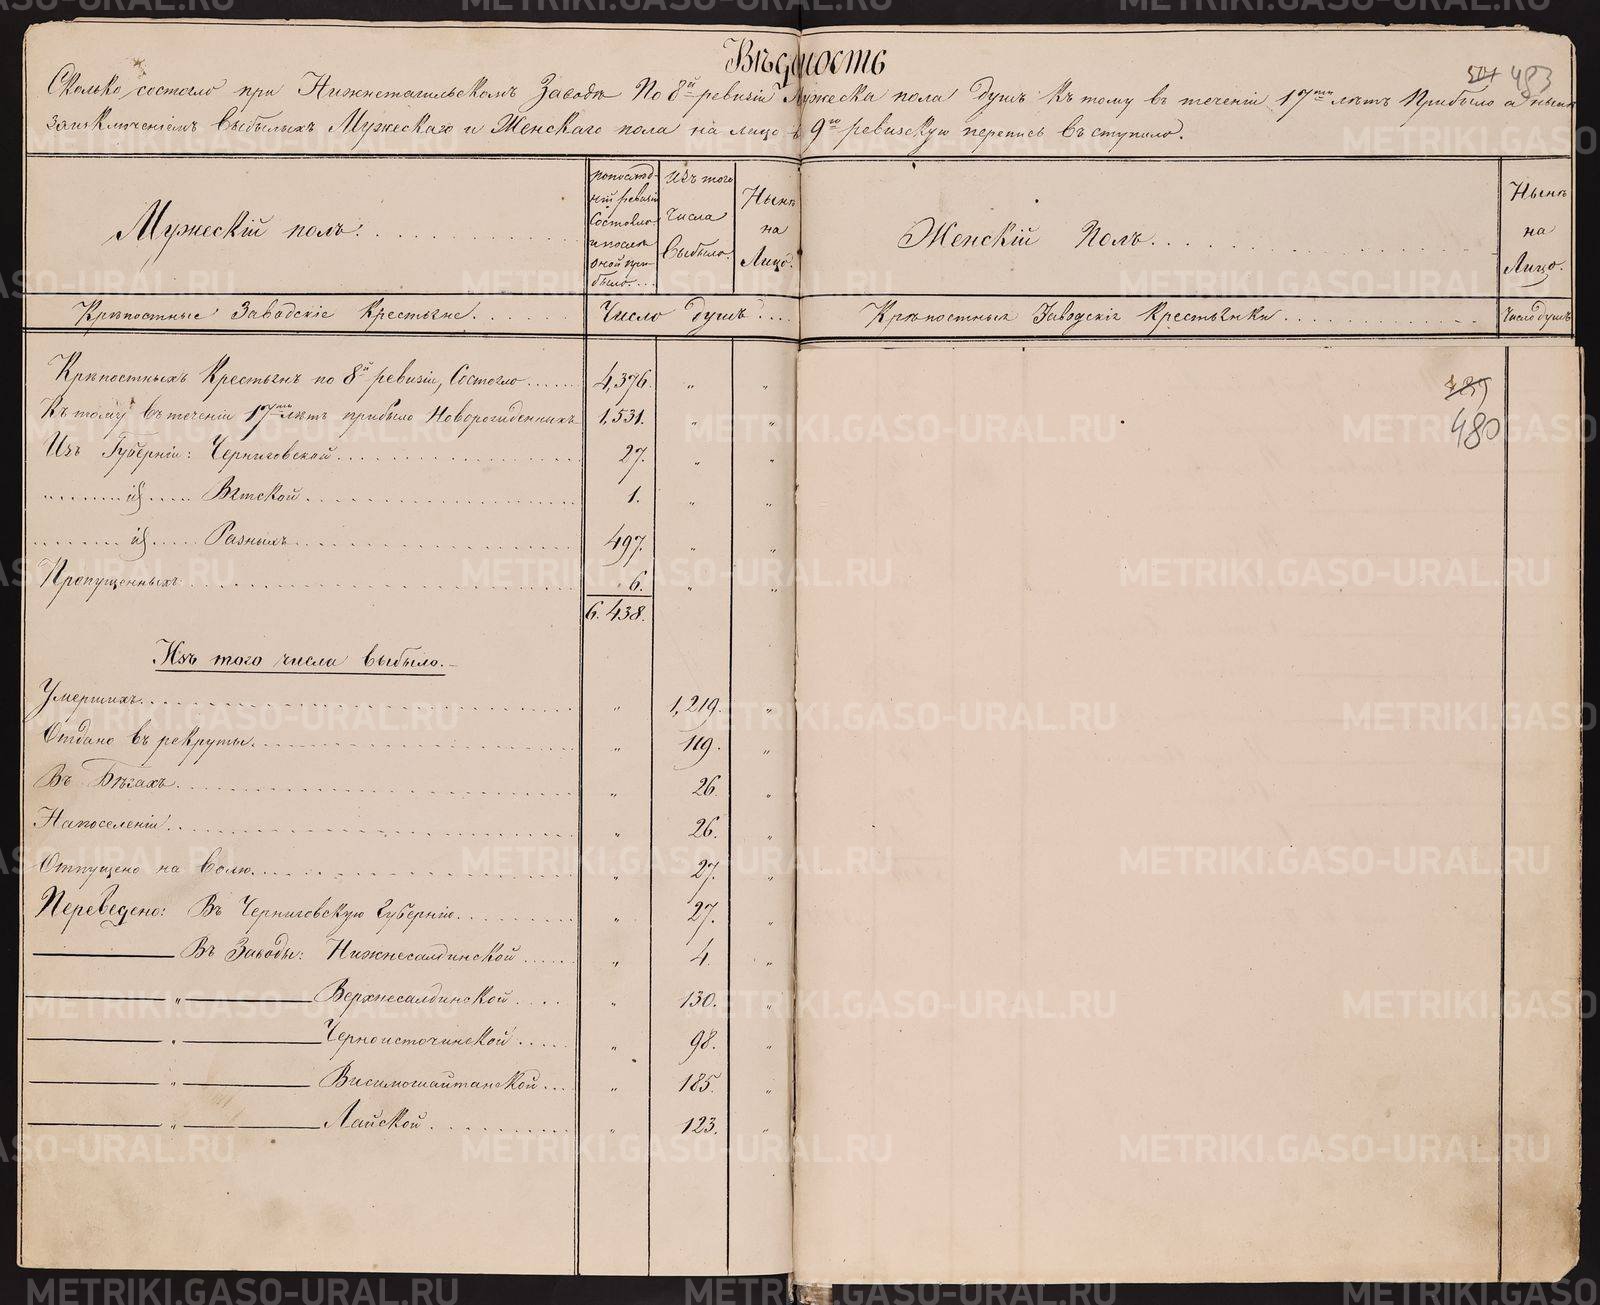 Вѣдомость
501 483
Сколько состояло при Нижнетагильскомъ Заводѣ По 8й ревизіи Мужеска пола Душъ Къ тому въ теченіи 17ти лѣтъ Прибыло а нынѣ
заисключеніемъ выбылыхъ Мужескаго и Женскаго пола на лицо въ 9ю ревизскую перепись вступило.
Мужескій полъ.
попослѣд-
ній ревизіи
Состояло
и послѣ
оной при-
было...
Изъ того
числа
Выбыло.
Нынѣ
на
Лицо.
Женскій Полъ.
Нынѣ
на
Лицо.
Крѣпостные Заводскіе Крестьяне.
Число Душъ
Крѣпостныя Заводскія Крестьянки
Число душъ
Крѣпостныхъ Крестьянъ по 8й ревизіи, Состояло 4,376. " "
Къ тому въ теченіи 17ти лѣтъ прибыло Новорожденныхъ 1,531. " "
Изъ Губерніи: Черниговской 27. " "
Вятской 1. " "
Разныхъ 497. " "
Пропущенныхъ 6. " "
6.438.
480
Изъ того числа выбыло.
Умершихъ " 1,219. "
Отдано въ рекруты " 119. "
Въ Бѣгахъ " 26 "
Напоселеніи " 26. "
Отпущено на волю " 27. "
Переведено: Въ Черниговскую Губернію " 27. "
Въ Заводы: Нижнесалдинской " 4. "
" Верхнесалдинской " 130. "
" Черноисточинской " 98. "
" Висимошайтанской " 185. "
" Лайской " 123. "
METRIKI.GASO-URAL.RU